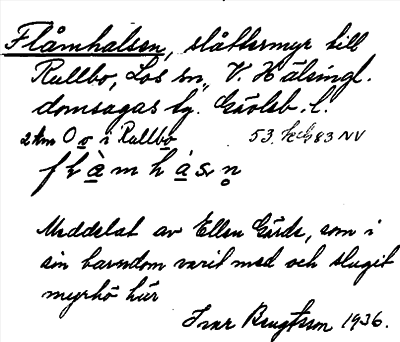 Flåmhalsen, slåttermyr till
Rullbo, Los sn, V. Hälsingl.
domsagas tg. Gävleb. l.
2 km O o i Rullbo 53. 83 NV
f l à m h á s n̥
Meddelat av Ellen Gärds, som i
sin barndom varit med och slagit
myrhö här
Ivar Bengtsson 1936.